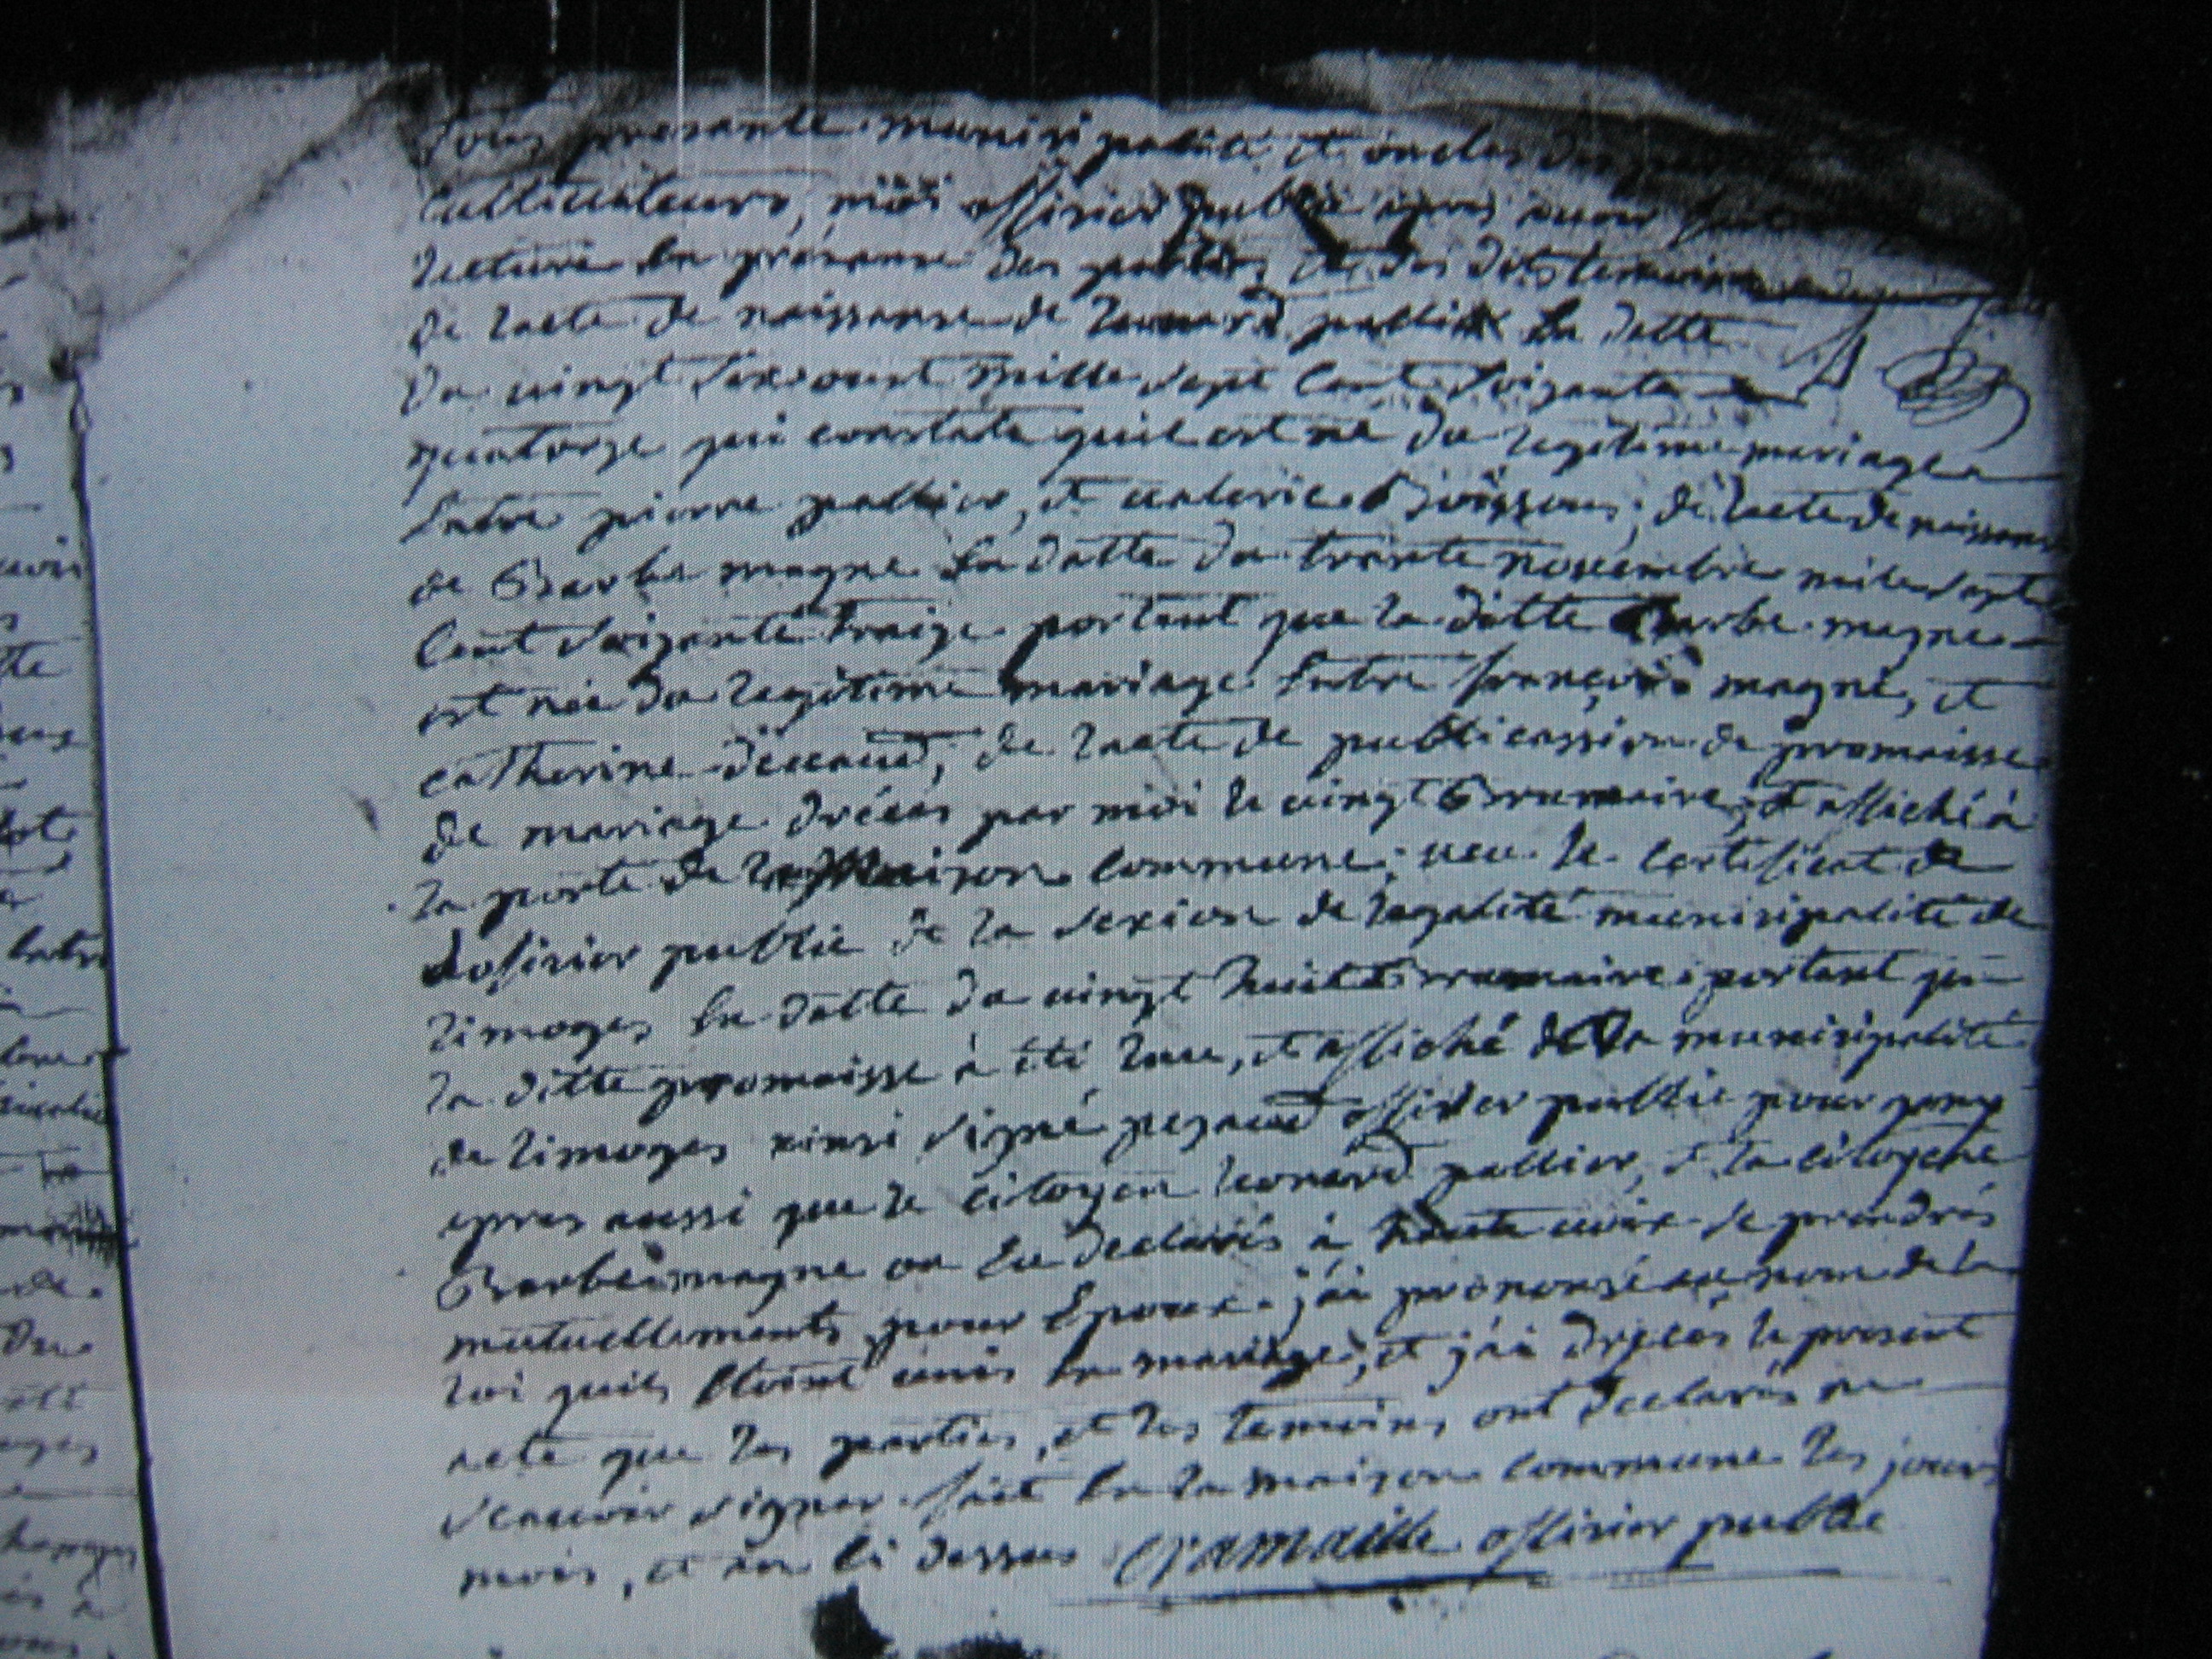 tous presante munisipalité et oncles des
cultivateurs, moi offisier public apres avoir fait
lecture en présance des parties et des dits temoins
de lacte de naissance de Leonard pallier en datte
du vingt six oust mille sept cent soizante
quatorze qui constate quil est né du legitime mariage
entre pierre pallier, et valerie Boissous, de lacte de naissance
de Barbe magne en datte du trante novembre mile sept
cent soizante traize portant que la ditte Barbe magne
est née du legitime mariage entre françois magne, et
catherine decaud, de lacte de publicassion de promaisse
de mariage dréées par moi le vingt Brumaire, et affiché à
la porte de la Maison commune; veu le certificat de
lofisier public de la sexion de legalité munisipalité de
limoges en datte du vingt huit Brumaire portant que
la ditte promaisse à été lue, et affiché de la munisipalité
de limoges ainsi signé pezaud offisier public pour
apres aussi que le citoyen leonard pallier, et la citoyene
Barbe magne on eu declarés à haute voix se prendrés
mutuellements pour Epoux. j'ai prononsé au nom de la
loi quils etoint unis en mariage, et j'ai dréées le present
acte que les parties, et les temoins ont declarés ne
scauvoir signer. fait en la maison commune les jours
mois, et an ci dessus Cramaille offisier public